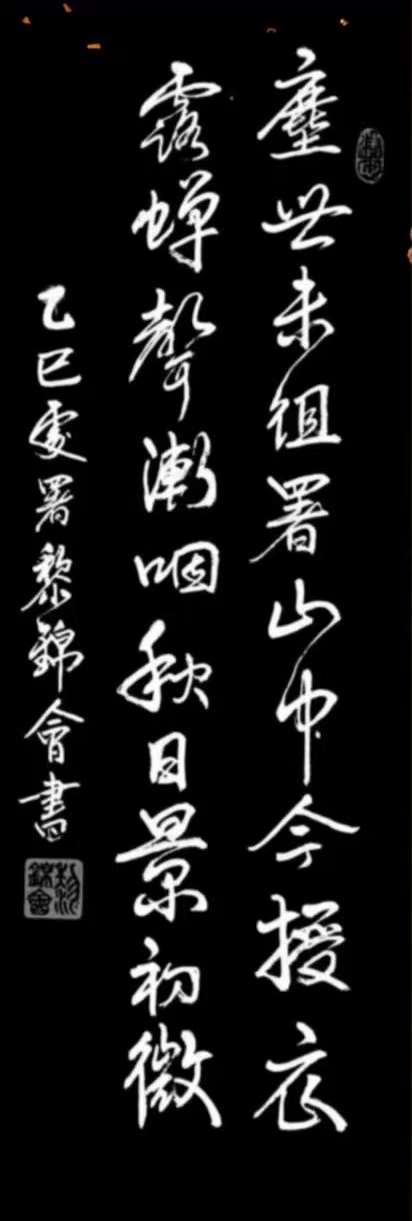 塵世未徂署山中今授衣
露蟬聲漸咽秋日景初微
乙巳處署黎錦會書
黎錦會